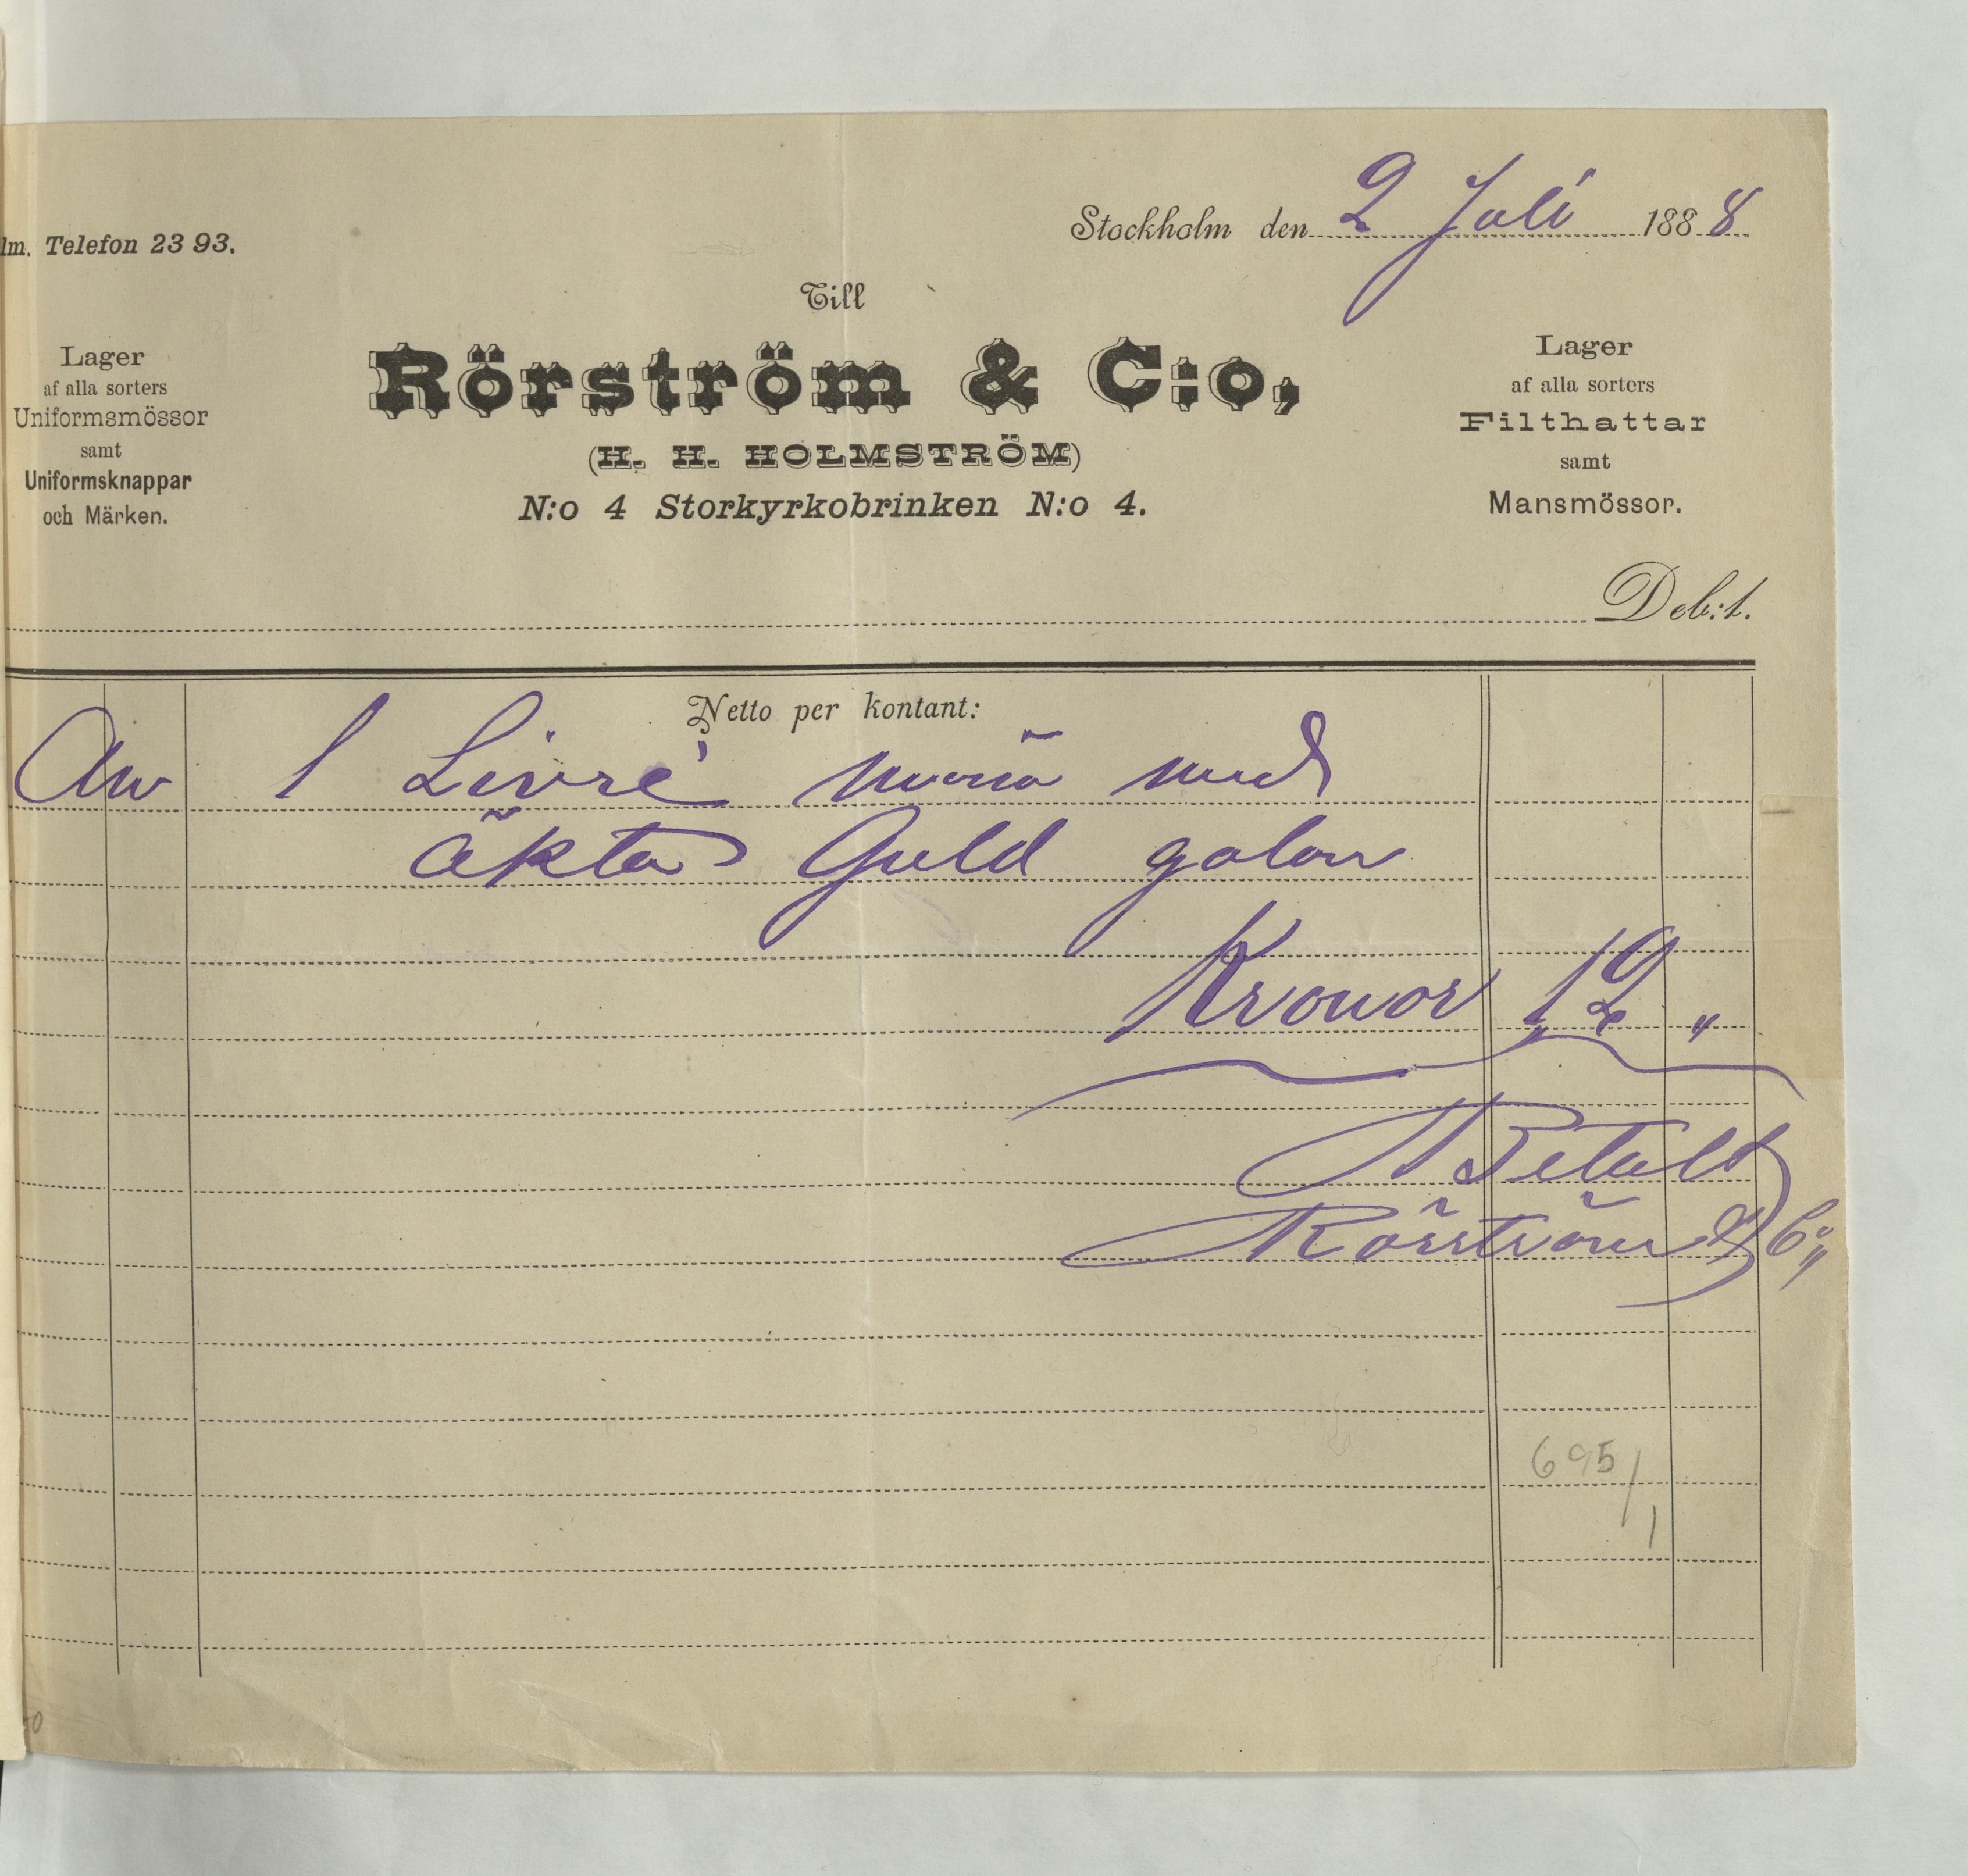 Stockholm den 2 Juli 1888
lm. Telefon 23 93.
Till
Rörström & C:o,
(H. H. HOLMSTRÖM)
N:o 4 Storkyrkobrinken N:o 4.
Lager
af alla sorters
Uniformsmössor
samt
Uniformsknappar
och Märken.
Lager
af alla sorters
Filthattar
samt
Mansmössor.
Deb:t.
Netto per kontant:
1 Livré med
äkta Guld galon
Kronor 12 "
Betalt
Rörström & Co
695/1